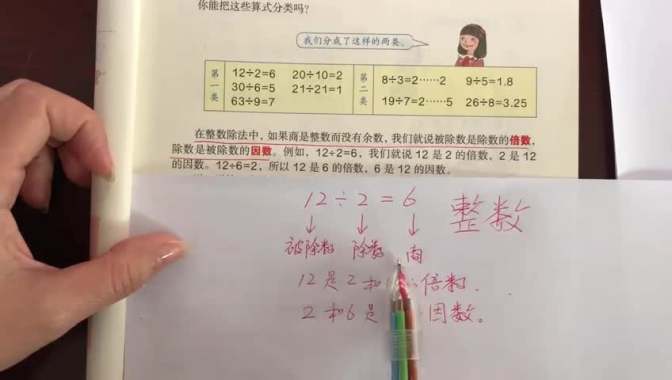 你能把这些算式分类吗?
我们分成了这样的两类。
第一类
12÷2=6 20÷10=2
30÷6=5 21÷21=1
63÷9=7
第二类
8÷3=2……2 9÷5=1.8
19÷7=2……5 26÷8=3.25
在整数除法中,如果商是整数而没有余数,我们就说被除数是除数的倍数,
除数是被除数的因数。例如,12÷2=6,我们就说 12 是 2 的倍数,2 是 12
的因数。12÷6=2,所以 12 是 6 的倍数,6 是 12 的因数。
12÷2=6 整数
↓ ↓ ↓
被除数 除数 商
12是2和 倍数.
2和6是 因数。